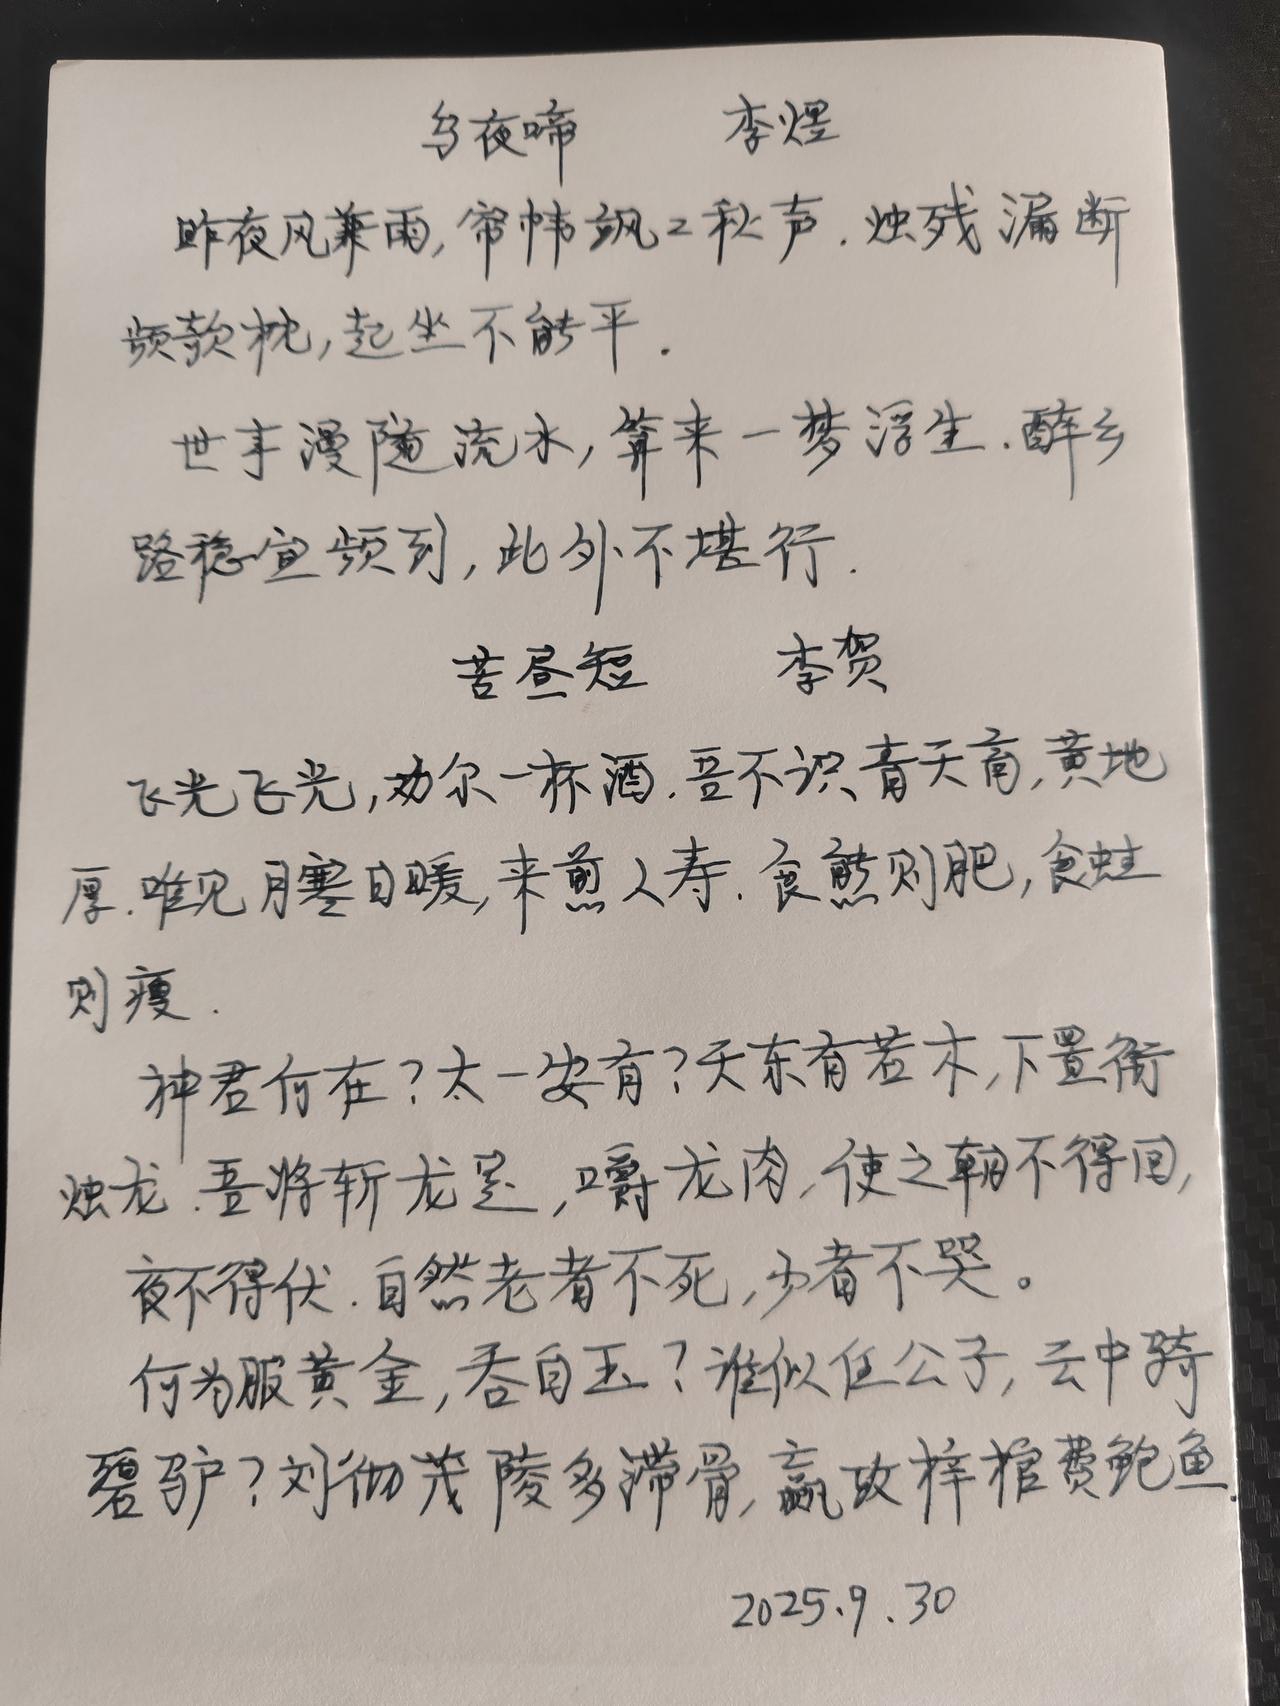 乌夜啼 李煜
昨夜风兼雨,帘帏飒〻秋声.烛残漏断
频欹枕,起坐不能平.
世事漫随流水,算来一梦浮生.醉乡
路稳宜频到,此外不堪行.
苦昼短 李贺
飞光飞光,劝尔一杯酒.吾不识青天高,黄地
厚.唯见月寒日暖,来煎人寿.食熊则肥,食蛙
则瘦.
神君何在?太一安有?天东有若木,下置衔
烛龙.吾将斩龙足,嚼龙肉,使之朝不得回,
夜不得伏.自然老者不死,少者不哭。
何为服黄金,吞白玉?谁似任公子,云中骑
碧驴?刘彻茂陵多滞骨,嬴政梓棺费鲍鱼.
2025.9.30